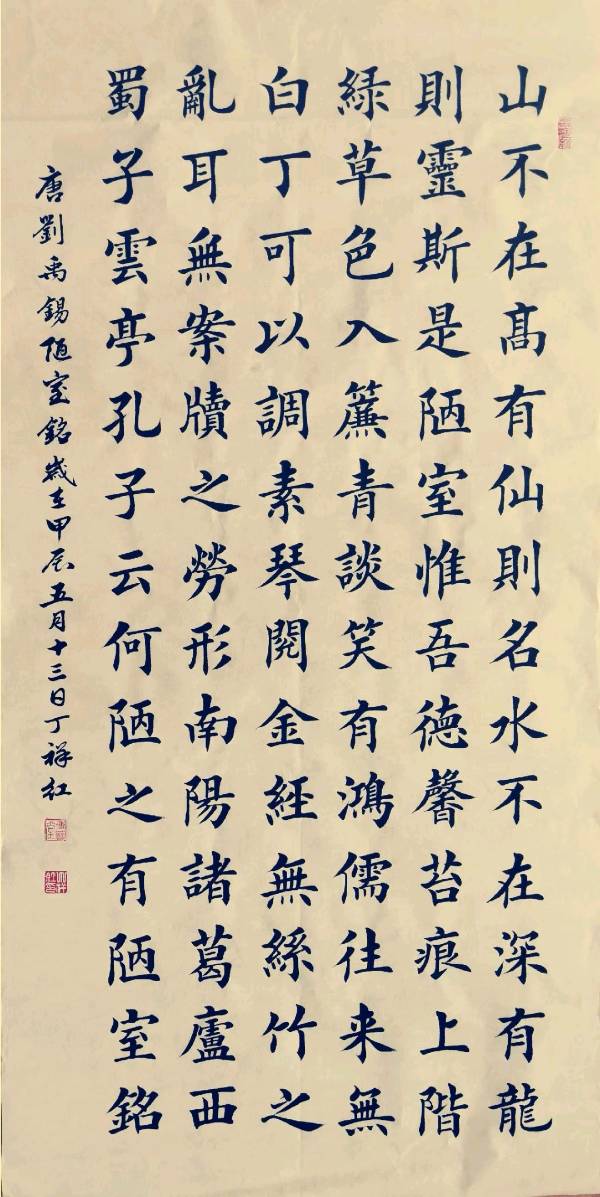 山不在高有仙則名水不在深有龍
則靈斯是陋室惟吾德馨苔痕上階
綠草色入簾青談笑有鴻儒往来無
白丁可以調素琴閱金經無絲竹之
亂耳無案牘之勞形南陽諸葛廬西
蜀子雲亭孔子云何陋之有陋室銘
唐劉禹錫陋室銘歲在甲辰五月十三日丁祥红